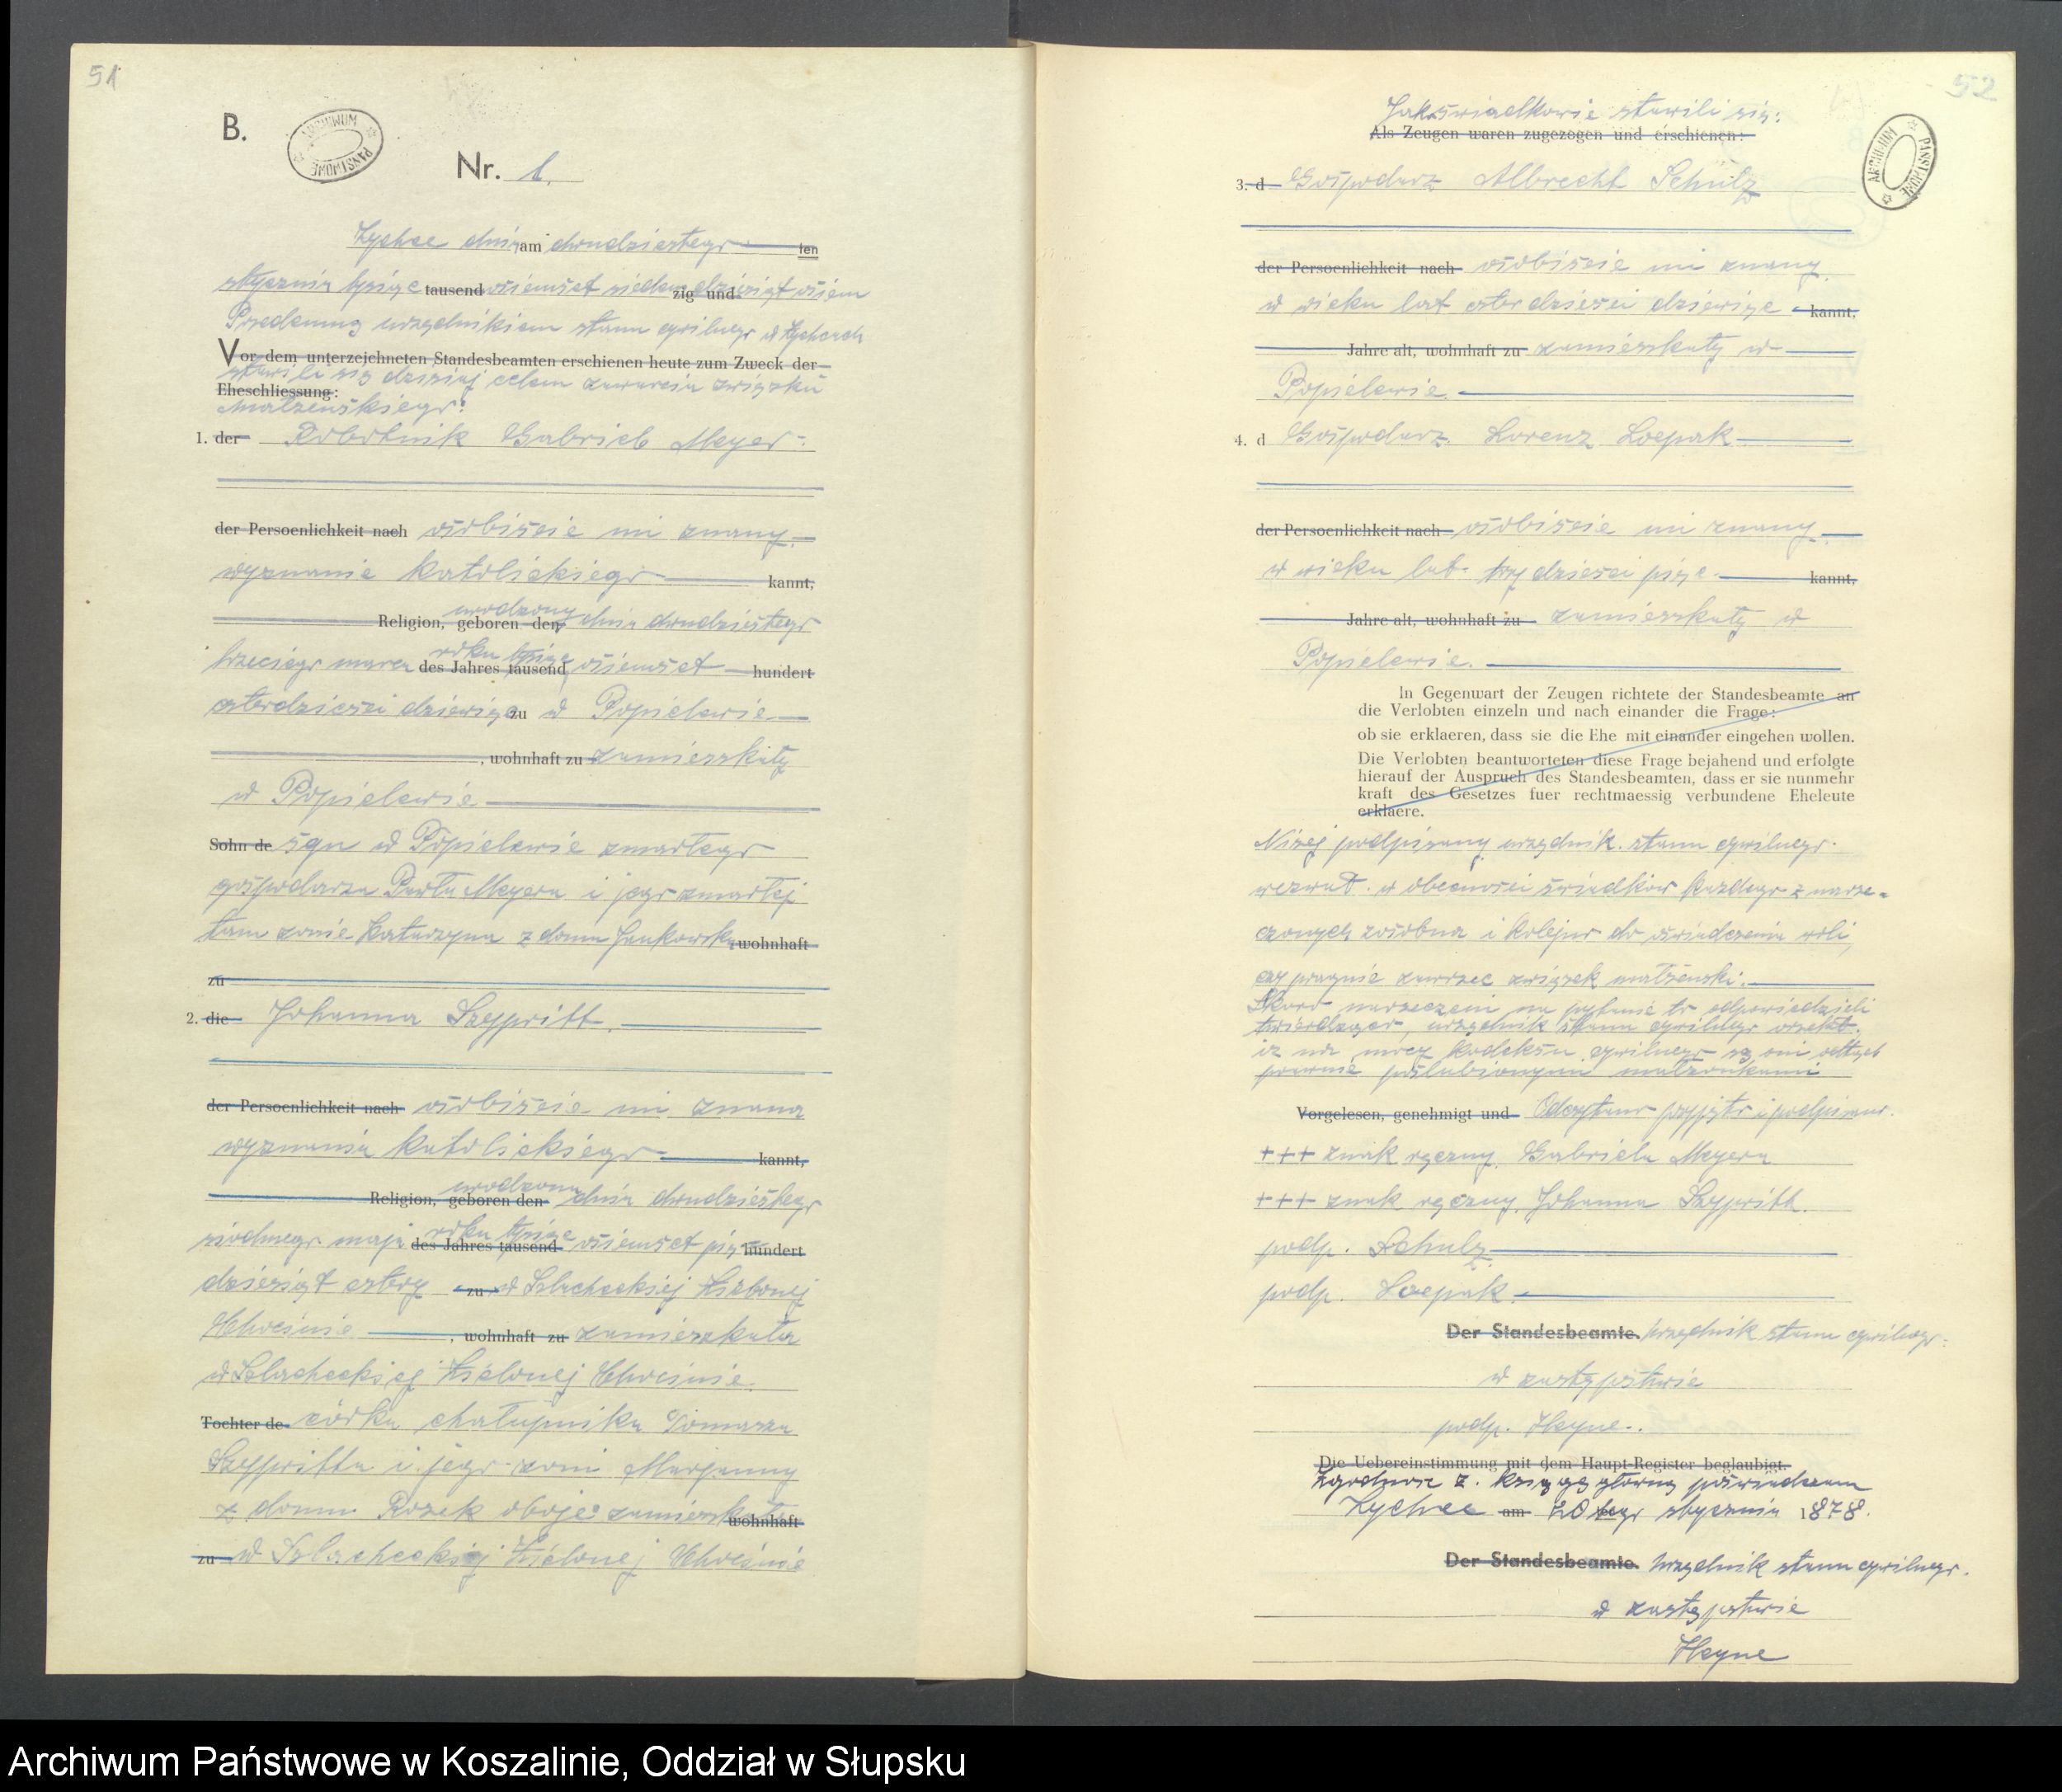 51
B.
ARCHIWUM PAŃSTWOWE
Nr. 1.
Zychce dnia am dwudziestego ten
stycznia tysiąc tausend osiemset siedemdziesiąt zig und osiem
Przedemną urzędnikiem stanu cywilnego w Zychcach
Vor dem unterzeichneten Standesbeamten erschienen heute zum Zweck der
stawili się dzisiaj celem zawarcia związku
Eheschliessung:
małżeńskiego:
1. der Robotnik Gabrieb Meyer
der Persoenlichkeit nach osobiście mi znany
wyznanie katolickiego kannt,
urodzony
Religion, geboren den dnia dwudziestego
roku tysiąc
trzeciego marca des Jahres tausend osiemset hundert
czterdzieści dziewięć zu w Popielewie
, wohnhaft zu zamieszkały
w Popielewie
Sohn de syn w Popielewie zmartego
gospodarza Pawła Meyera i jego zmartej
tam żonie Katarzyna z domu Jankowska wohnhaft
zu
2. die Johanna Szypritt.
der Persoenlichkeit nach osobiście mi znana
wyznania katolickiego kannt,
urodzona
Religion, geboren den dnia dwudziestego
roku tysiąc
siódmego maja des Jahres tausend osiemset pięć hundert
dziesiąt cztery zu w Szlacheckiej Zielonej
Chocinie , wohnhaft zu zamieszkała
w Szlacheckiej Zielonej Chocinie
Tochter de córka chałupnika Tomasza
Szypritta i jego żoni Marjanny
z domu Rozek oboje zamieszkałe wohnhaft
zu w Szlacheckiej Zielonej Chocinie
52
Jako świadkowie stawili się:
Als Zeugen waren zugezogen und erschienen:
ARCHIWUM PAŃSTWOWE
3. d Gospodarz Albrecht Schulz
der Persoenlichkeit nach osobiście mi znany
w wieku lat czterdzieści dziewięć kannt,
Jahre alt, wohnhaft zu zamieszkały w
Popielewie.
4. d Gospodarz Lorenz Loepak
der Persoenlichkeit nach osobiście mi znany
w wieku lat trzydzieści pięć kannt,
Jahre alt, wohnhaft zu zamieszkały w
Popielewie.
In Gegenwart der Zeugen richtete der Standesbeamte an
die Verlobten einzeln und nach einander die Frage:
ob sie erklaeren, dass sie die Ehe mit einander eingehen wollen.
Die Verlobten beantworteten diese Frage bejahend und erfolgte
hierauf der Auspruch des Standesbeamten, dass er sie nunmehr
kraft des Gesetzes fuer rechtmaessig verbundene Eheleute
erklaere.
Niżej podpisany urzędnik stanu cywilnego
wezwał w obecności świadków każdego z narze-
czonych zosobna i kolejno do oświadczenia woli,
czy pragnie zawrzeć związek małżeński.
Skoro narzeczeni na pytanie to odpowiedzieli
twierdząco, urzędnik stanu cywilnego orzekł,
iż na mocy kodeksu cywilnego są oni odtąd
prawnie poślubionymi małżonkami
Vorgelesen, genehmigt und Odczytano przyjęto i podpisano.
+++ znak ręczny Gabriela Meyera
+++ znak ręczny Johanna Szypritt.
podp. Schulz
podp. Loepak.
Der Standesbeamte. Urzędnik stanu cywilnego.
w zastępstwie
podp. Heyne.
Die Uebereinstimmung mit dem Haupt-Register beglaubigt.
Zgodność z księgą główną poświadczam
Zychce am 20 tego stycznia 1878.
Der Standesbeamte. Urzędnik stanu cywilnego.
w zastępstwie
Heyne
Archiwum Państwowe w Koszalinie, Oddział w Słupsku